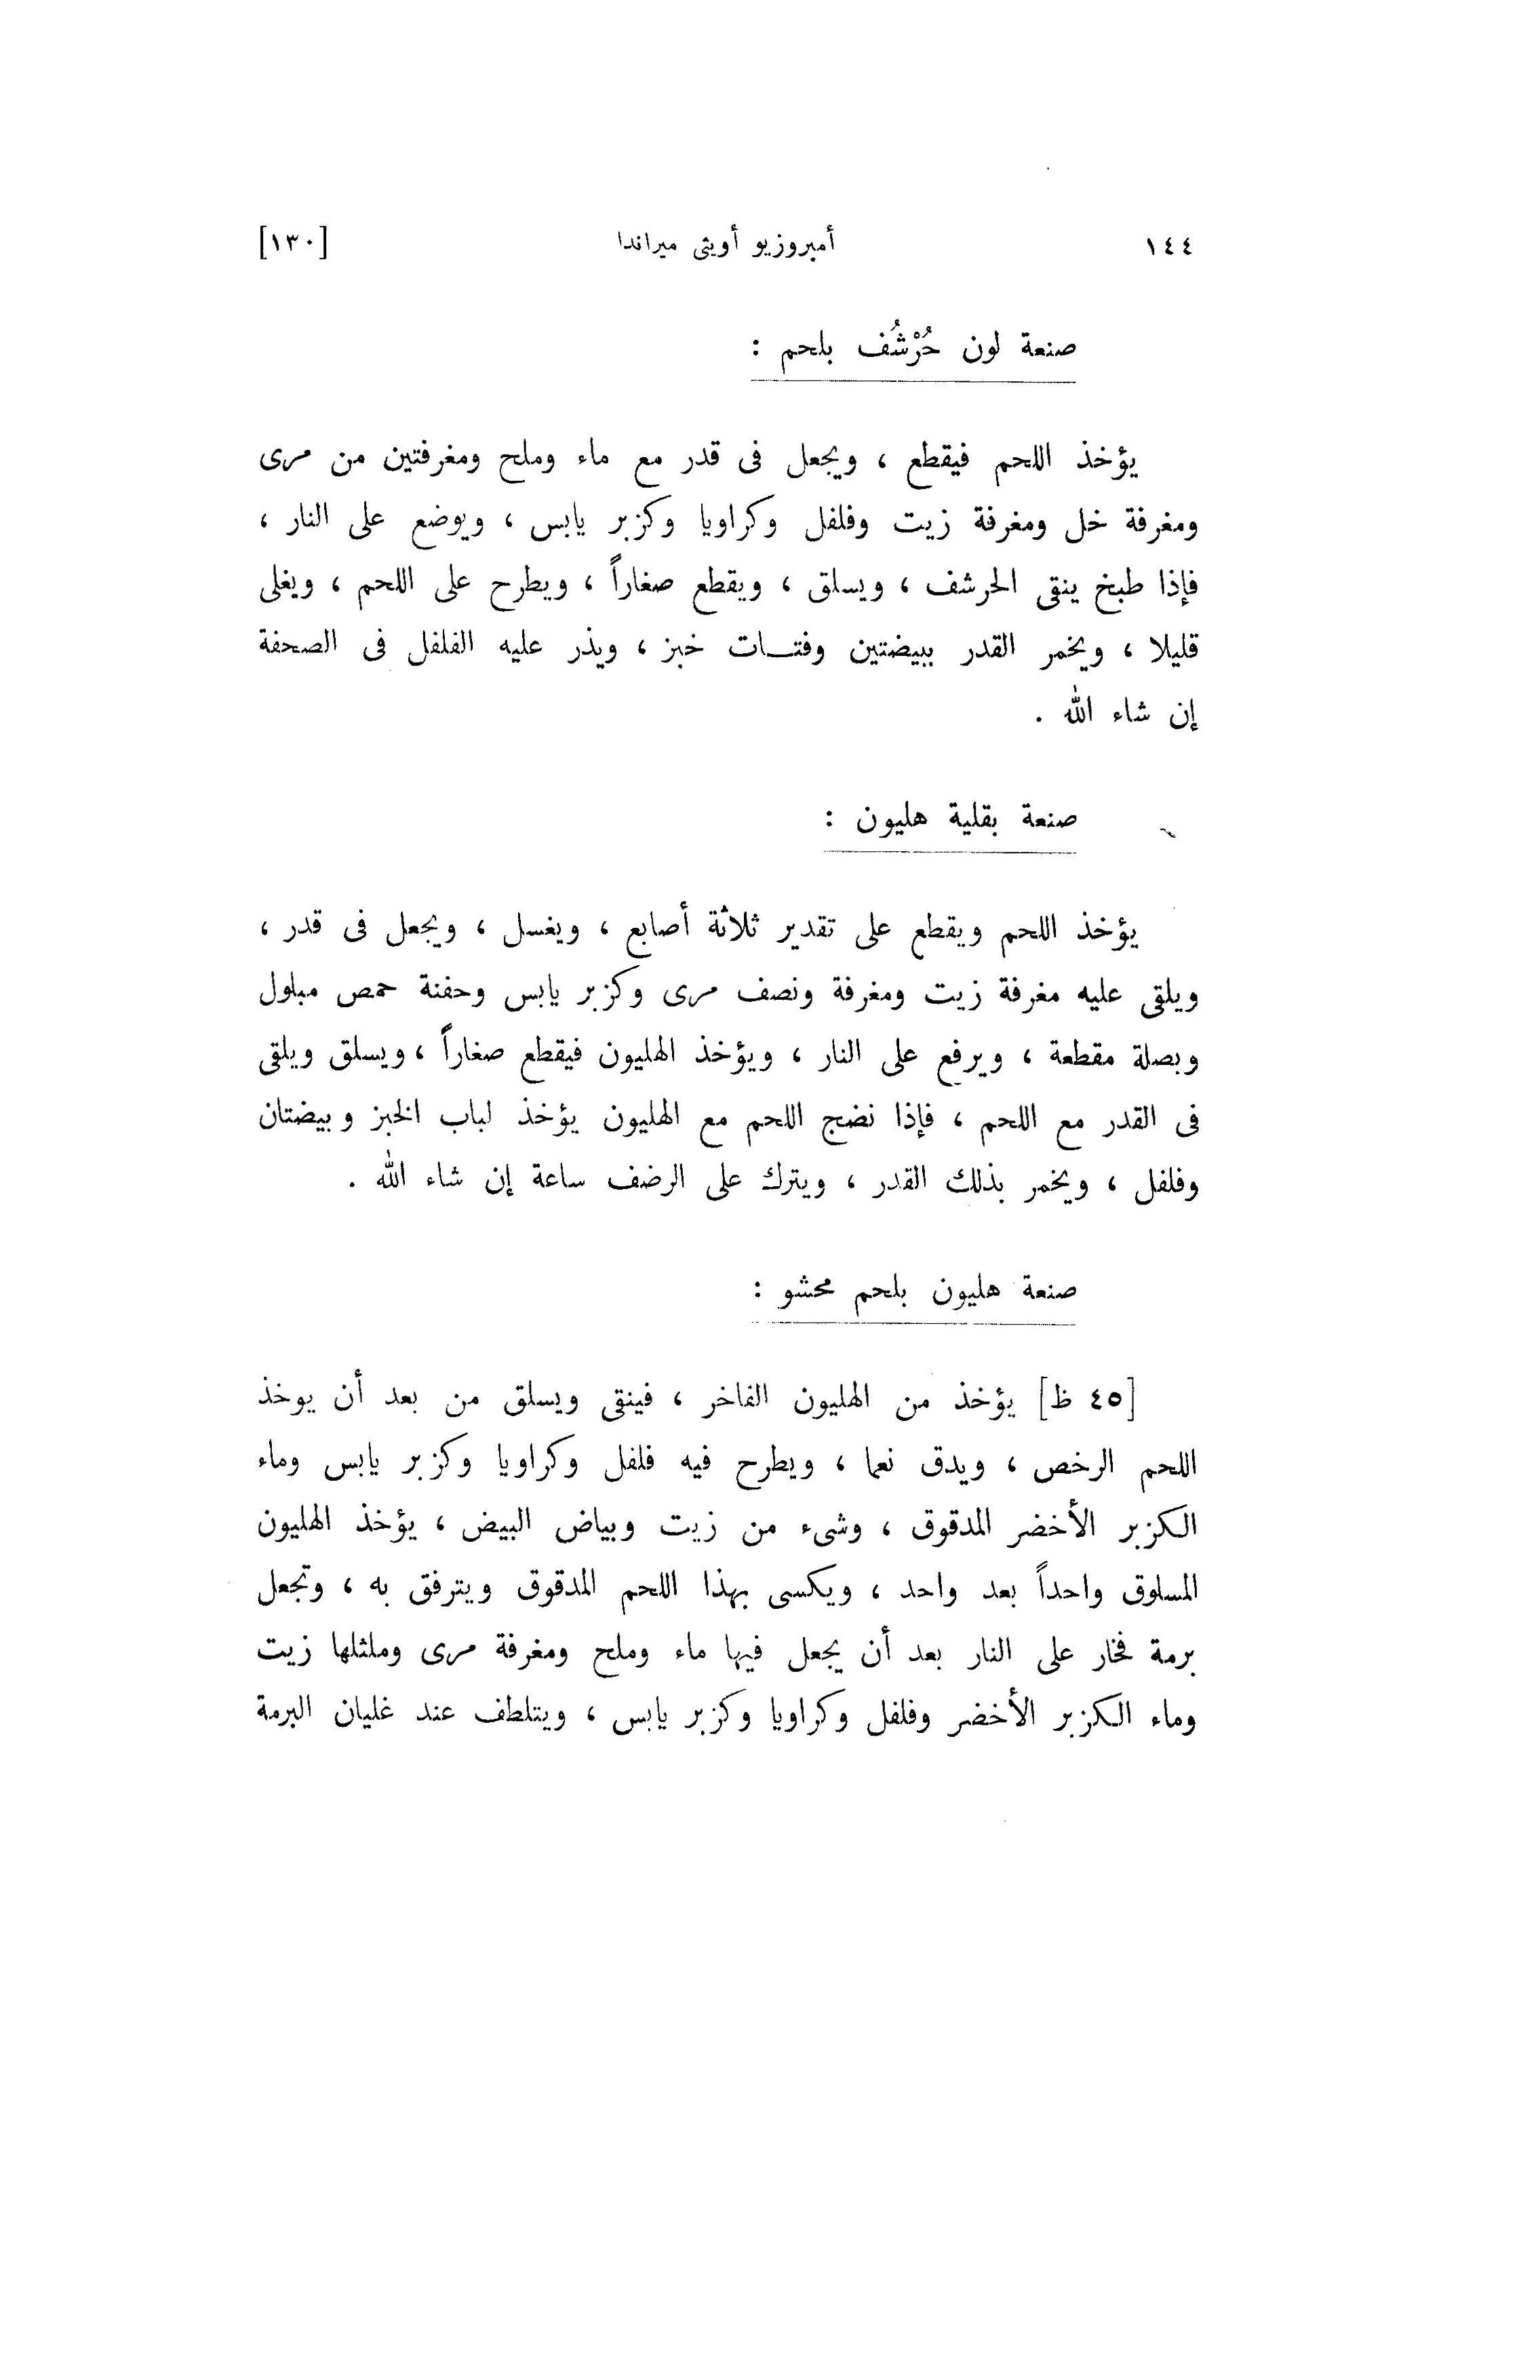 ١٤٤ أمبروزيو أويثى ميراندا [١٣٠]
صنعة لون حُرْشُف بلحم :
يؤخذ اللحم فيقطع ، ويجعل فى قدر مع ماء وملح ومغرفتين من مرى
ومغرفة خل ومغرفة زيت وفلفل وكراويا وكزبر يابس ، ويوضع على النار ،
فإذا طبخ ينقى الحرشف ، ويسلق ، ويقطع صغاراً ، ويطرح على اللحم ، ويغلى
قليلا ، ويخمر القدر ببيضتين وفتــات خبز ، ويذر عليه الفلفل فى الصحفة
إن شاء الله .
صنعة بقلية هليون :
يؤخذ اللحم ويقطع على تقدير ثلاثة أصابع ، ويغسل ، ويجعل فى قدر ،
ويلقى عليه مغرفة زيت ومغرفة ونصف مرى وكزبر يابس وحفنة حمص مبلول
وبصلة مقطعة ، ويرفع على النار ، ويؤخذ الهليون فيقطع صغاراً ، ويسلق ويلقى
فى القدر مع اللحم ، فإذا نضج اللحم مع الهليون يؤخذ لباب الخبز وبيضتان
وفلفل ، ويخمر بذلك القدر ، ويترك على الرضف ساعة إن شاء الله .
صنعة هليون بلحم محشو :
[٤٥ ظ] يؤخذ من الهليون الفاخر ، فينقى ويسلق من بعد أن يوخذ
اللحم الرخص ، ويدق نعما ، ويطرح فيه فلفل وكراويا وكزبر يابس وماء
الكزبر الأخضر المدقوق ، وشىء من زيت وبياض البيض ، يؤخذ الهليون
المسلوق واحداً بعد واحد ، ويكسى بهذا اللحم المدقوق ويترفق به ، وتجعل
برمة فخار على النار بعد أن يجعل فيها ماء وملح ومغرفة مرى وملثلها زيت
وماء الكزبر الأخضر وفلفل وكراويا وكزبر يابس ، ويتلطف عند غليان البرمة